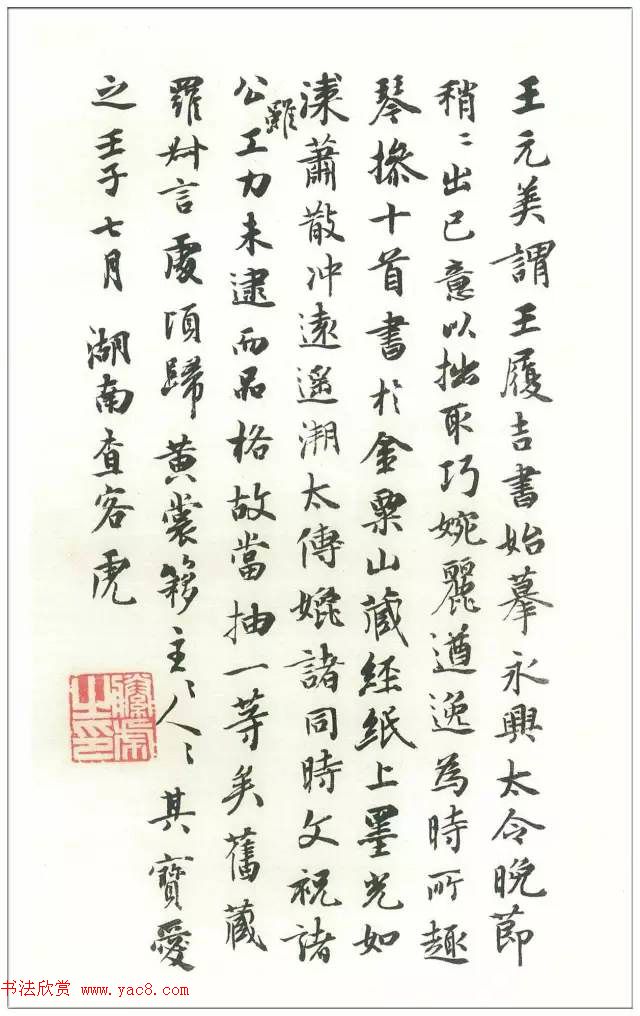 王元美謂王履吉書始摹永興太令晚節
稍〻出已意以拙取巧婉麗遒逸為時所趣
琴操十首書於金粟山藏經紙上墨光如
漆蕭散冲遠遥溯太傅媲諸同時文祝諸
公雖工力未逮而品格故當抽一等矣舊藏
羅叔言處頃歸黃裳簃主〻人〻其寶愛
之壬子七月 湖南查客虎
书法欣赏 www.yac8.com